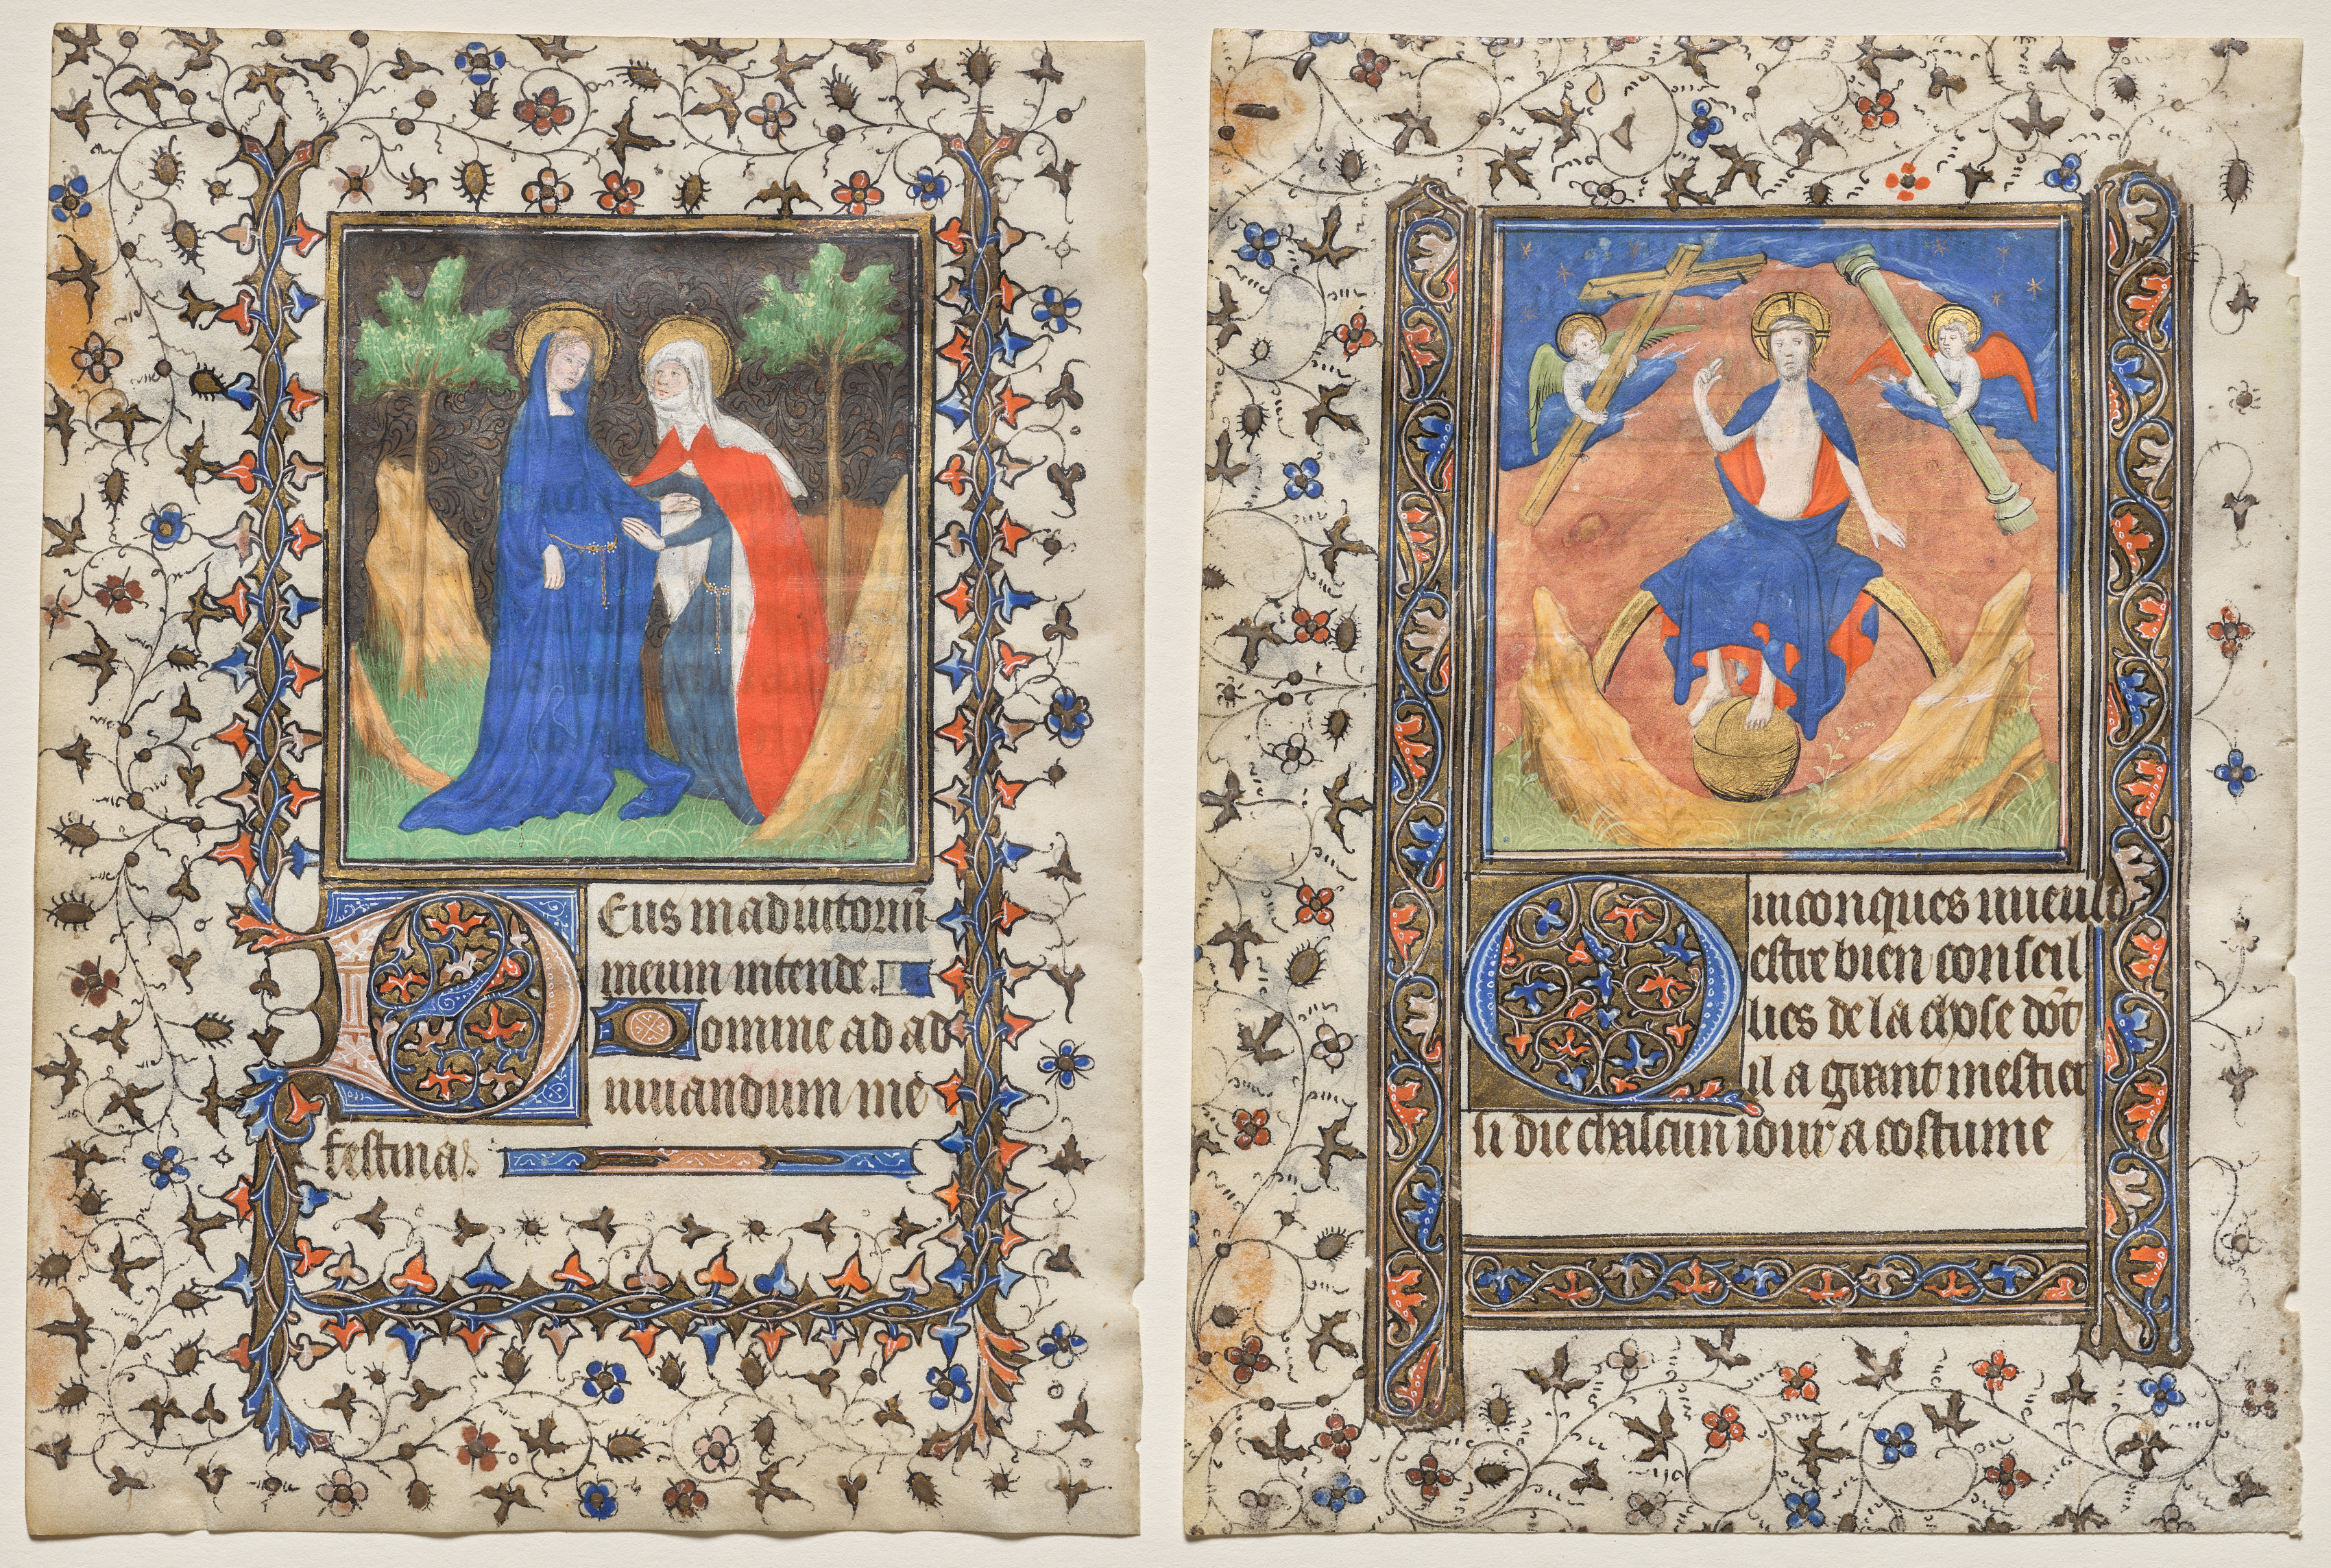 Deus in adiutoriũ
meum intende.
Domine ad ad
iuuandum me
festina.
Quiconques uueult
estre bien conseil
lies de la chose dõt
il a grant mestier
si die chascun iour a costume